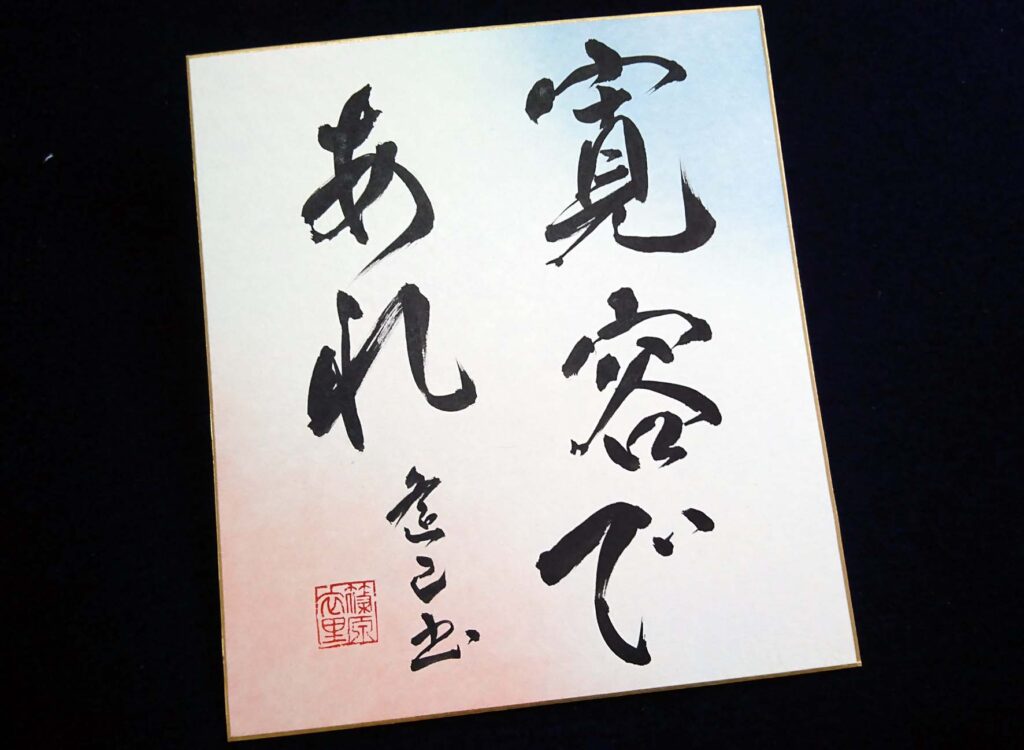 寛容で
あれ